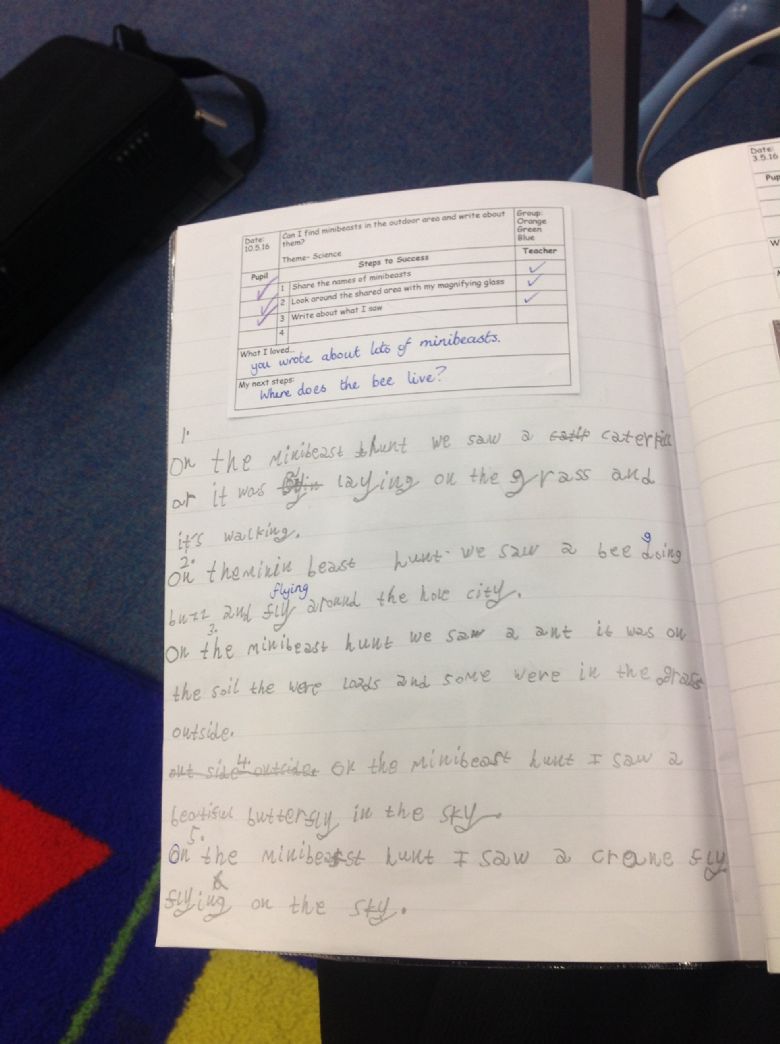 Date:
10.5.16
Can I find minibeasts in the outdoor area and write about
them?
Theme- Science
Group:
Orange
Green
Blue
Pupil
Steps to Success
Teacher
1 Share the names of minibeasts
2 Look around the shared area with my magnifying glass
3 Write about what I saw
4
What I loved...
you wrote about lots of minibeasts.
My next steps:
Where does the bee live?
1.
On the minibeast hunt we saw a caterpill
ar it was laying on the grass and
it's walking.
2.
On theminin beast hunt we saw a bee going
flying
buzz and fly around the hole city.
3.
On the minibeast hunt we saw a ant it was on
the soil the were loads and some were in the grass
outside.
out side outside. 4. On the minibeast hunt I saw a
beatiful butterfly in the sky.
5.
On the minibeast hunt I saw a crane fly
flying on the sky.
Date:
3.5.16
Pup